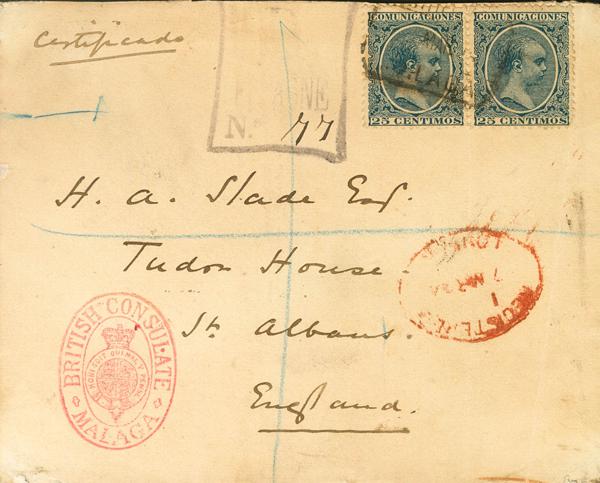 Certificado
N. 77
COMUNICACIONES
25 CENTIMOS
COMUNICACIONES
25 CENTIMOS
H. A. Slade Esq.
Tudor House.
St. Albans.
England.
REGISTERED
LONDON
7 MR
BRITISH CONSULATE
MALAGA
HONI SOIT QUI MAL Y PENSE